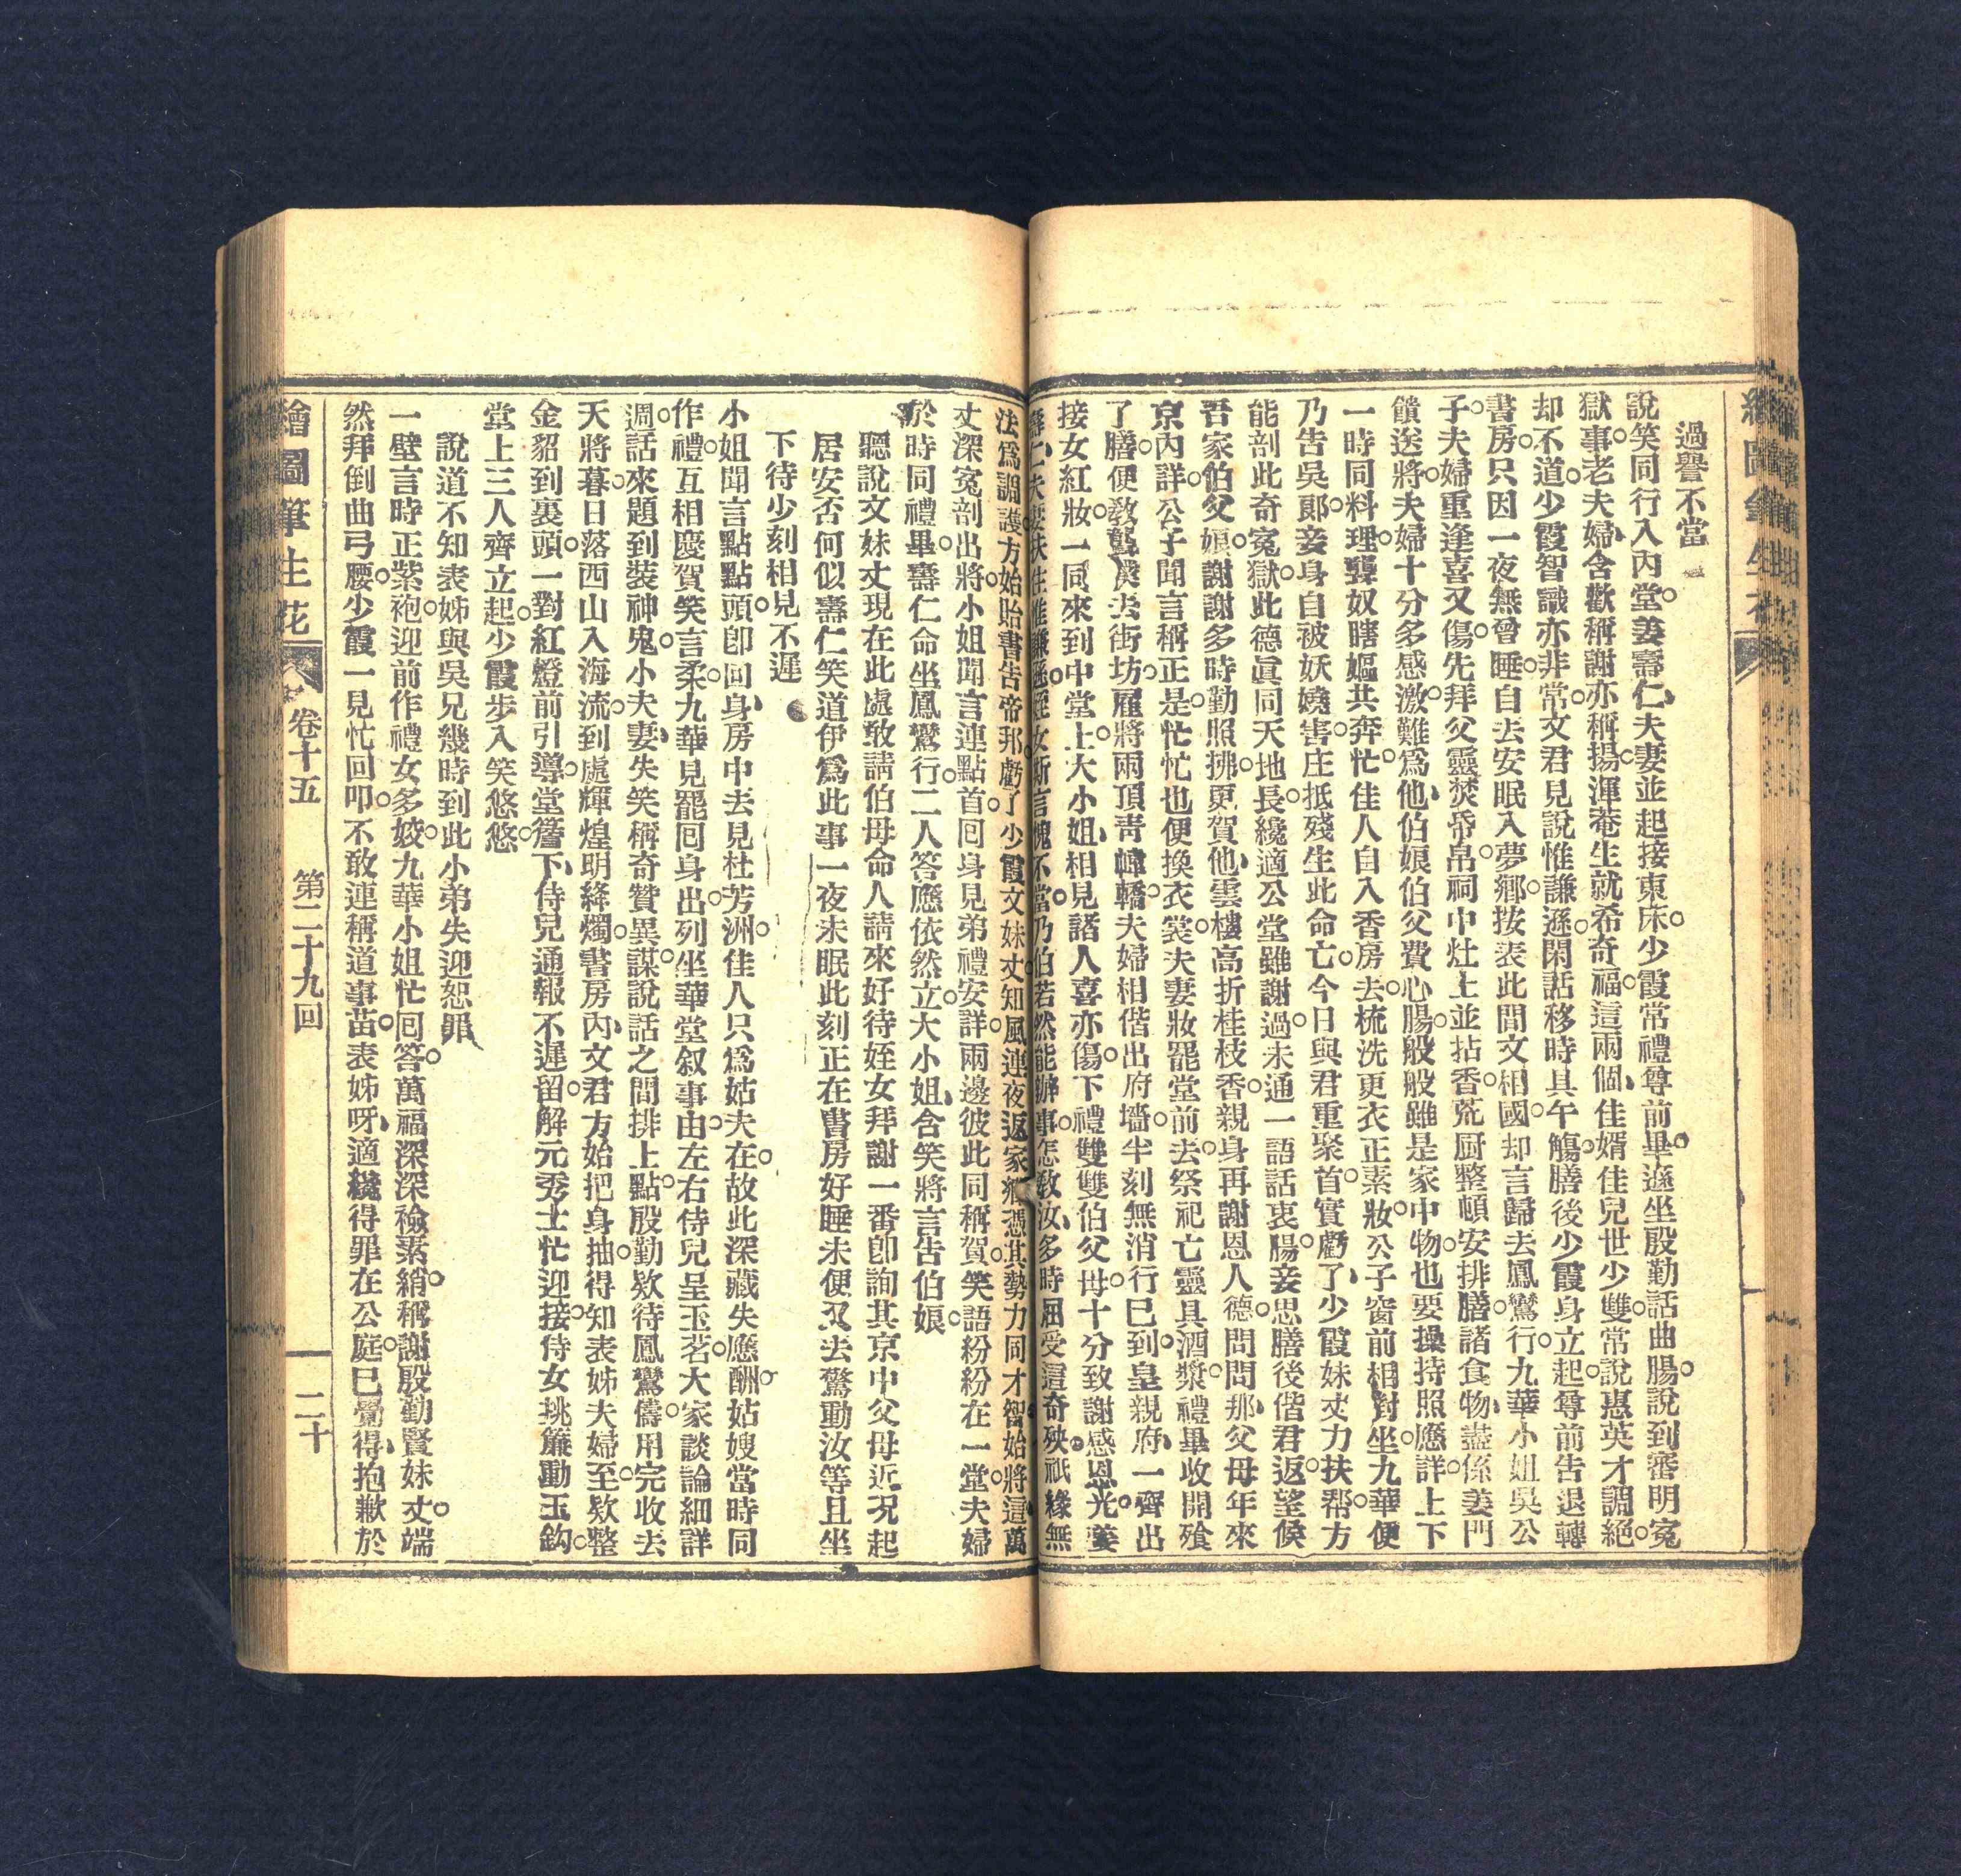 過譽不當
說笑同行入內堂。姜壽仁、夫妻並起接東床。少霞常禮尊前畢。遜坐殷勤話曲腸。說到審明冤
獄事。老夫婦、含歡稱謝亦稱揚。渾菴生就希奇福。這兩個、佳婿佳兒世少雙。常說惠英才調絕。
却不道。少霞智識亦非常。文君見說惟謙遜。閑話移時具午觴。膳後少霞身立起。尊前告退轉
書房。只因一夜無曾睡。自去安眠入夢鄉。按表此間文相國。却言歸去鳳鸞行。九華小姐吳公
子。夫婦重逢喜又傷。先拜父靈焚帋帛。祠中灶上並拈香。蔸厨整頓安排膳。諸食物、盡係姜門
饋送將。夫婦十分多感激。難爲他、伯娘伯父費心腸。般般雖是家中物。也要操持照應詳。上下
一時同料理。聾奴瞎嫗共奔忙。佳人自入香房去。梳洗更衣正素妝。公子窗前相對坐。九華便
乃告吳郎。妾身自被妖嬈害。庄抵殘生此命亡。今日與君重聚首。實虧了、少霞妹丈力扶幫。方
能剖此奇冤獄。此德眞同天地長。纔適公堂雖謝過。未通一語話衷腸。妾思膳後偕君返。望候
吾家伯父娘。謝謝多時勤照拂。更賀他、雲樓高折桂枝香。親身再謝恩人德。問問那、父母年來
京內詳。公子聞言稱正是。忙忙也便換衣裳。夫妻妝罷堂前去。祭祀亡靈具酒漿。禮畢收開飧
了膳。便敎聾僕去街坊。雇將兩頂靑幃轎。夫婦相偕出府墻。半刻無消行已到。皇親府、一齊出
接女紅妝。一同來到中堂上。大小姐、相見諸人喜亦傷。下禮雙雙伯父母。十分致謝感恩光。姜
壽仁、夫妻扶住惟謙遜。姪女斯言愧不當。乃伯若然能辦事。怎敎汝、多時屈受這奇殃。祇緣無
法爲調護。方始貽書告帝邦。虧了少霞文妹丈。知風連夜返家鄉。憑其勢力同才智。始將這、萬
丈深冤剖出將。小姐聞言連點首。囘身見弟禮安詳。兩邊彼此同稱賀。笑語紛紛在一堂。夫婦
於時同禮畢。壽仁命坐鳳鸞行。二人答應依然立。大小姐、含笑將言告伯娘。
聽說文妹丈現在此處敢請伯母命人請來好待姪女拜謝一番卽詢其京中父母近況起
居安否何似壽仁笑道伊爲此事一夜未眠此刻正在書房好睡未便又去驚動汝等且坐
下待少刻相見不遲
小姐聞言點點頭。卽回身、房中去見杜芳洲。佳人只爲姑夫在。故此深藏失應酬。姑嫂當時同
作禮。互相慶賀笑言柔。九華見罷囘身出。列坐華堂叙事由。左右侍兒呈玉茗。大家談論細詳
週。話來題到裝神鬼。小夫妻、失笑稱奇贊異謀。說話之間排上點。殷勤欵待鳳鸞儔。用完收去
天將暮。日落西山入海流。到處輝煌明絳燭。書房內、文君方始把身抽。得知表姊夫婦至。欵整
金貂到裏頭。一對紅燈前引導。堂簷下、侍兒通報不遲留。解元秀士忙迎接。侍女挑簾動玉鈎。
堂上三人齊立起。少霞步入笑悠悠。
說道不知表姊與吳兄幾時到此小弟失迎恕罪
一壁言時正紫袍。迎前作禮女多姣。九華小姐忙囘答。萬福深深襝素綃。稱謝殷勤賢妹丈。端
然拜倒曲弓腰。少霞一見忙回叩。不敢連稱道事苗。表姊呀、適纔得罪在公庭。已覺得、抱歉於
繪圖筆生花 卷十五 第二十九回 二十